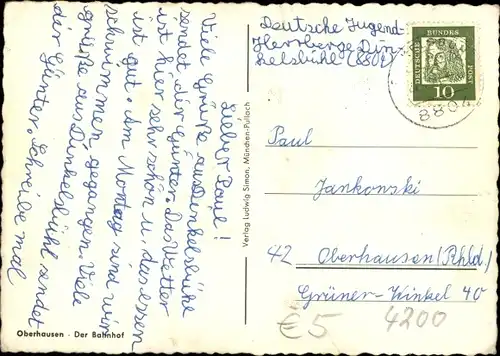 Lieber Paul!
Viele Grüße aus Dinkelsbühl
sendet dir Günter. Das Wetter
ist hier sehr schön u. das essen
ist gut. Am Montag sind wir
schwimmen gegangen. Viele
grüße aus Dinkelsbühl sendet
dir Günter. Schreibe mal
Oberhausen - Der Bahnhof
Verlag Ludwig Simon, München-Pullach
Deutsche Jugend-
Herrberge Din
kelsbühl (8804)
DEUTSCHE BUNDESPOST
10
8804
Paul
Jankowski
42 Oberhausen (Rhld.)
Grüner-Winkel 40
€5 4200